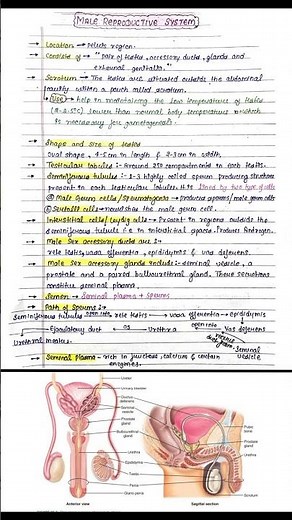 MALE REPRODUCTIVE SYSTEM
→ Location → Pelvis region.
→ Consists of → "pair of testes, accessory ducts, glands and
external genitalia."
→ Scrotum → The testes are situated outside the abdominal
cavity within a pouch called scrotum.
Use → help in maintaining the low temperature of testes
(2-2.5°C) lower than normal body temperature which
is necessary for
→ Shape and size of testes
Oval shape, 4-5 cm in length & 2-3 cm in width.
→ Testicular lobules :- Around 250 compartments in each testis.
→ Seminiferous tubules :- 1-3 highly coiled sperm producing structure
present in each testicular lobule. It is lined by two type of cells
Male Germ cells/Spermatogonia → produces
Sertoli cells → the male germ cell.
→ Interstitial cells/Leydig cells → Present in regions outside the
seminiferous tubule i.e in interstitial spaces. Produces Androgen.
→ Male Sex accessory ducts are :-
rete testis, vasa efferentia, epididymis & vas deferens.
→ Male Sex accessory glands include :- seminal vesicle, a
prostate and a paired bulbourethral gland. These secretions
constitute seminal plasma.
→ Semen → Seminal plasma + sperms
→ Path of sperms :-
Seminiferous tubule → rete testis → vasa efferentia → epididymis
Ejaculatory duct Urethra Vas deferens
Urethral meatus. Seminal
→ Seminal Plasma → rich in fructose, calcium & certain vesicle
enzymes.
Ureter
Urinary bladder
Seminal
vesicle
Prostate
gland
Bulbourethral
gland
Urethra
Epididymis
Testis
Penis
Glans penis
Pubic
bone
Prostate
gland
Urethra
Scrotum
Anterior view
Sagittal section